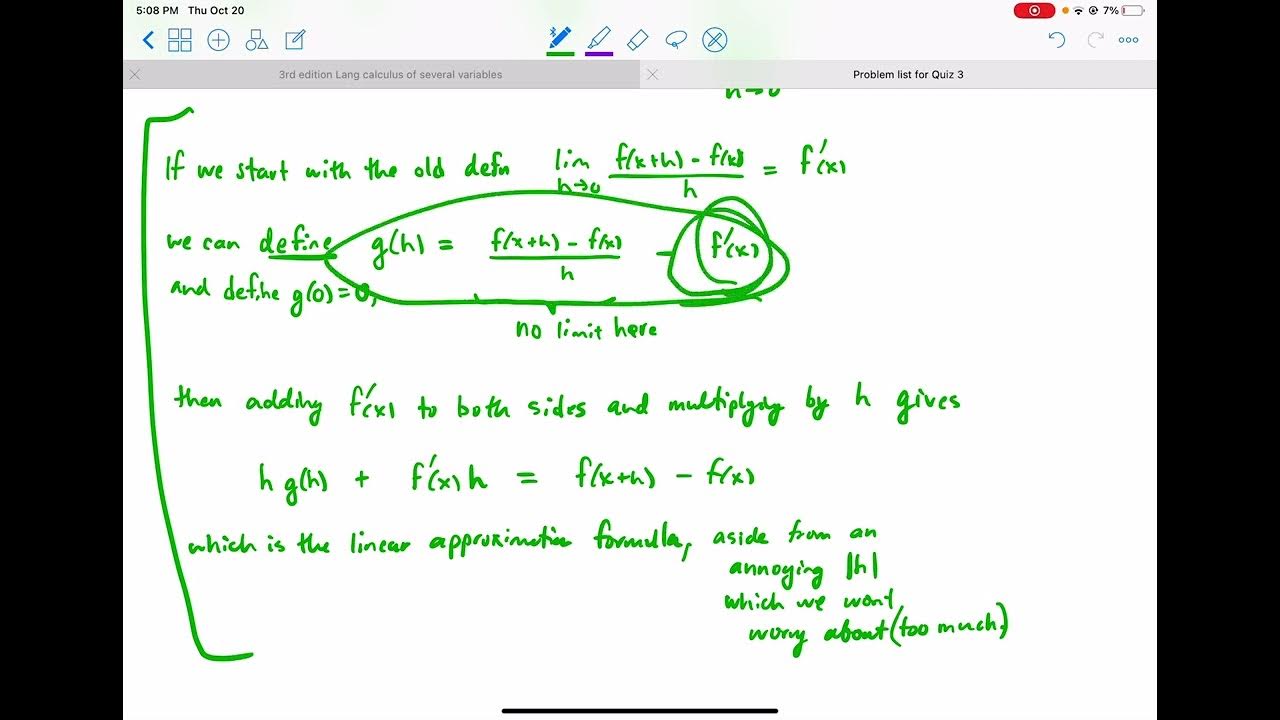 5:08 PM Thu Oct 20
7%
3rd edition Lang calculus of several variables
Problem list for Quiz 3
h→0
If we start with the old defn lim h→0 (f(x+h) - f(x))/h = f'(x)
we can define g(h) = (f(x+h) - f(x))/h - f'(x)
and define g(0)=0,
no limit here
then adding f'(x) to both sides and multiplying by h gives
h g(h) + f'(x) h = f(x+h) - f(x)
which is the linear approximation formula, aside from an
annoying |h|
which we wont
worry about (too much)